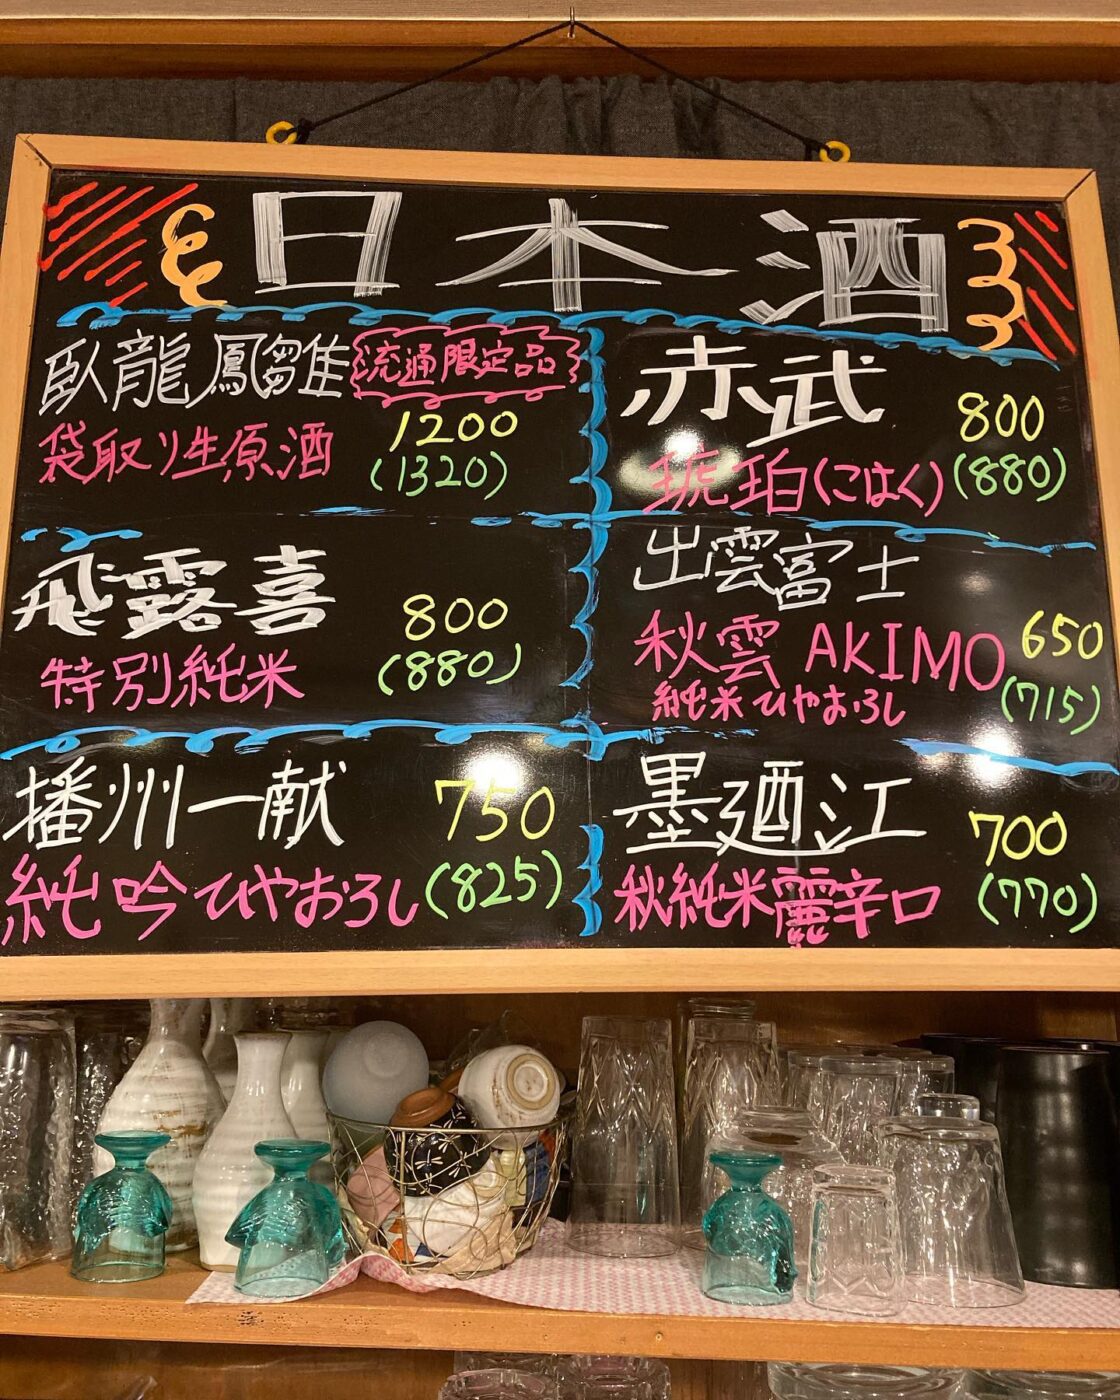 日本酒
臥龍鳳雛 流通限定品
袋取り生原酒 1200
(1320)
飛露喜
特別純米 800
(880)
播州一献 750
純吟ひやおろし (825)
赤武 800
琥珀(こはく) (880)
出雲富士
秋雲 AKIMO 650
純米ひやおろし (715)
墨廼江 700
秋純米麗辛口 (770)